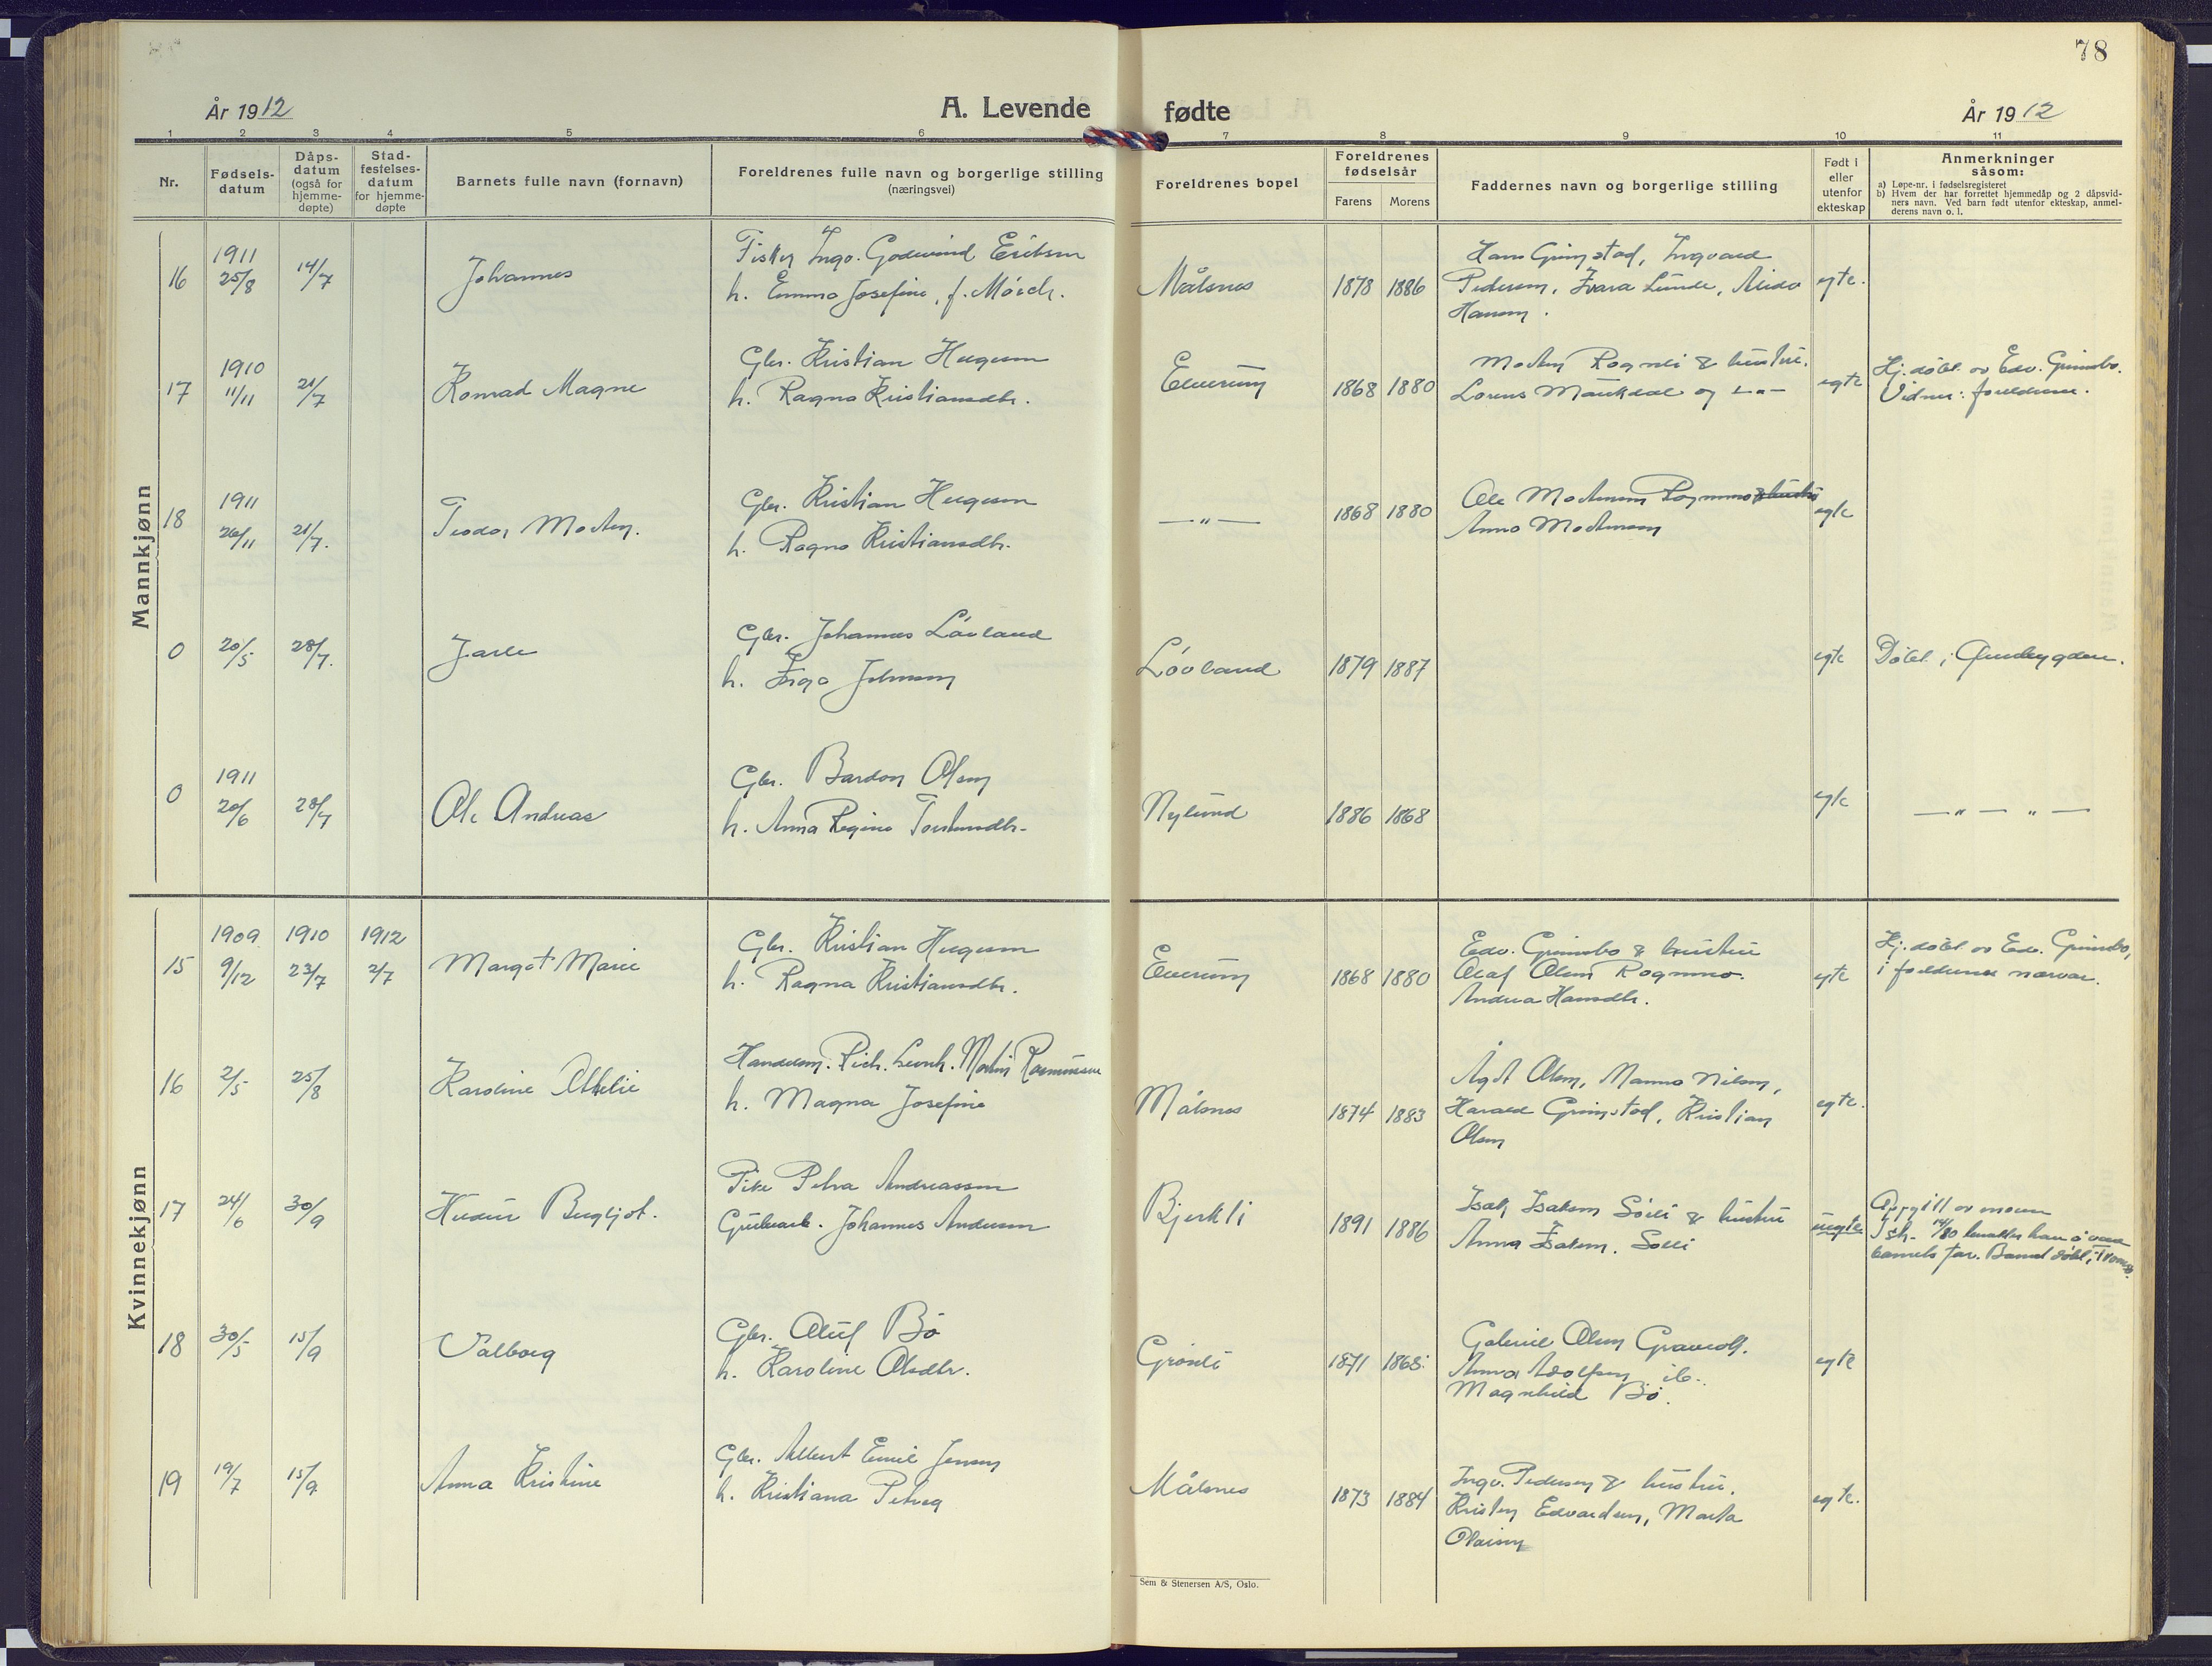 78
År 1912
A. Levende fødte
År 1912
1 2 3 4 5 6 7 8 9 10 11
Nr.
Fødsels-
datum
Dåps-
datum
(også for
hjemme-
døpte)
Stad-
festelses-
datum
for hjemme-
døpte
Barnets fulle navn (fornavn)
Foreldrenes fulle navn og borgerlige stilling
(næringsvei)
Foreldrenes bopel
Foreldrenes
fødselsår
Farens Morens
Faddernes navn og borgerlige stilling
Født i
eller
utenfor
ekteskap
Anmerkninger
såsom:
a) Løpe-nr. i fødselsregisteret
b) Hvem der har forrettet hjemmedåp og 2 dåpsvid-
ners navn. Ved barn født utenfor ekteskap, anmel-
derens navn o. l.
Mannkjønn
16
1911
25/8
14/7
Johannes
Fisker Ingv. Erikson
h. Emma Josefine, f. Mörch.
Målsnes
1878 1886
Hans Grimstad, Ingvard
Pedersen, Lunde,
Hansen.
egte.
17
1910
11/11
21/7
Konrad Magne
Gbr. Kristian Heggesen
h. Ragna Kristiansdtr.
Elverum
1868 1880
Morten Rognli & hustru.
Lorens Maukdal og -"-
egte
Hj. döbt av Edv. Grimsbo.
Vidner: foreldrene.
18
1911
26/11
21/7.
Teodor Morten.
Gbr. Kristian Heggesen
h. Ragna Kristiansdtr.
—"—
1868 1880
Ole Mortensen Rognmo & hustru
Anna Mortensen
egte
0
20/5
28/7.
Jarle
Gbr. Johannes Lövland
h. Inga Johnsen
Lövland
1879 1887
egte
Döbt i
0
1911
20/6
28/7
Ole Andreas
Gbr. Bardon Olsen
h. Anna Regine
Nylund
1886 1868
egte
—"— "—
Kvinnekjønn
15
1909
9/12
1910
23/7
1912
2/7
Margot Marie
Gbr. Kristian Heggesen
h. Ragna Kristiansdtr.
Elverum
1868 1880
Edv. Grimsbo & hustru
Olaf Olsen Rognmo.
Andrea Hansdtr.
egte
Hj. döbt av Edv. Grimsbo,
i foreldrenes nærvær.
16
2/5
25/8
Karoline Othelie
Handelsm. Rich. Leonh. Martin Rasmussen
h. Magna Josefine
Målsnes
1874 1883
Agot Olsen, Manna Nilsen,
Harald Grimstad, Kristian
Olsen
egte.
17
24/6
30/9
Bergljot.
Pike Petra Andreassen
Grubearb. Johannes Andersen
Bjerkli
1891 1886
Isak Isaksen Sölli & hustru
Anna Isaksen. Solli
uegte
Opgitt av moren
barnets far. Barnet döbt i Tromsö.
18
30/5
15/9
Valborg
Gbr. Oluf Bö
h. Karoline Olsdtr.
Grönli
1871 1868.
Gabriel Olsen
Anna Adolfsen ib.
Magnhild Bö.
egte
19
19/7
15/9
Anna Kristine
Gbr. Albert Emil Jensen
h. Kristiana Petrea
Målsnes
1873 1884
Ingv. Pedersen & hustru.
Kristen Edvardsen, Marta
Olaisen
egte.
Sem & Stenersen A/S, Oslo.